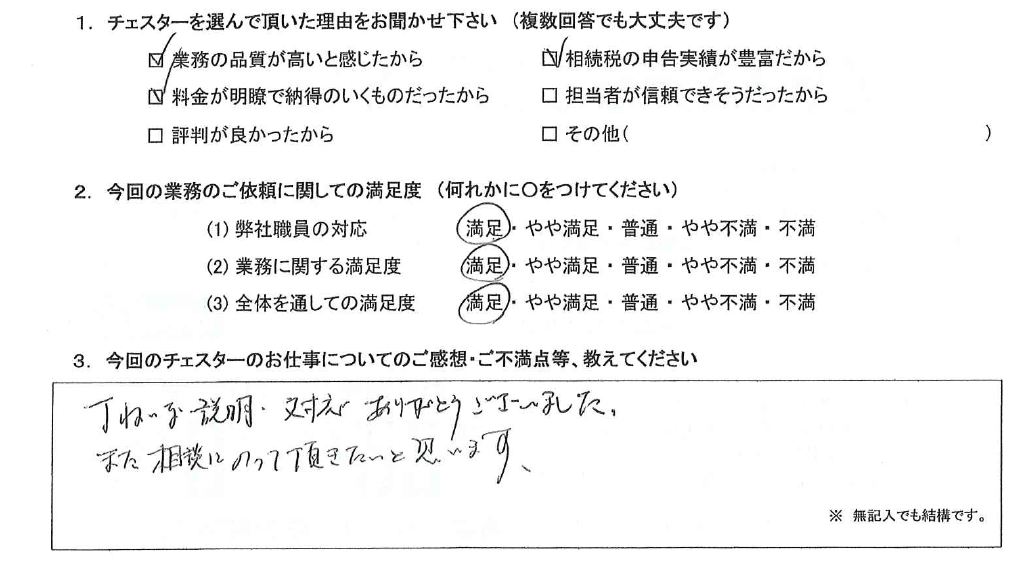 1. チェスターを選んで頂いた理由をお聞かせ下さい（複数回答でも大丈夫です）
☑ 業務の品質が高いと感じたから ☑ 相続税の申告実績が豊富だから
☑ 料金が明瞭で納得のいくものだったから □ 担当者が信頼できそうだったから
□ 評判が良かったから □ その他( )
2. 今回の業務のご依頼に関しての満足度（何れかに○をつけてください）
(1) 弊社職員の対応 満足・やや満足・普通・やや不満・不満
(2) 業務に関する満足度 満足・やや満足・普通・やや不満・不満
(3) 全体を通しての満足度 満足・やや満足・普通・やや不満・不満
3. 今回のチェスターのお仕事についてのご感想・ご不満点等、教えてください
丁ねいな説明・対応ありがとうございました。
また相談にのって頂きたいと思います、
※ 無記入でも結構です。